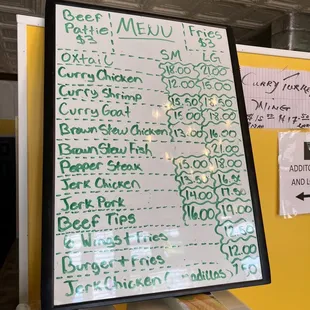 Beef Pattie $3
MENU
Fries $3
SM LG
Oxtail 18.00 21.00
Curry Chicken 12.00 15.00
Curry Shrimp
Curry Goat 15.50 18.50
Brown Stew Chicken 13.00 16.00
Brown Stew Fish 21.00
Pepper Steak 15.00 18.00
Jerk Chicken
Jerk Pork 14.00 17.50
Beef Tips 16.00 19.00
6 Wings + Fries 12.50
Burger + Fries 12.00
Jerk Chicken 7.50
Curry Turkey
Wing